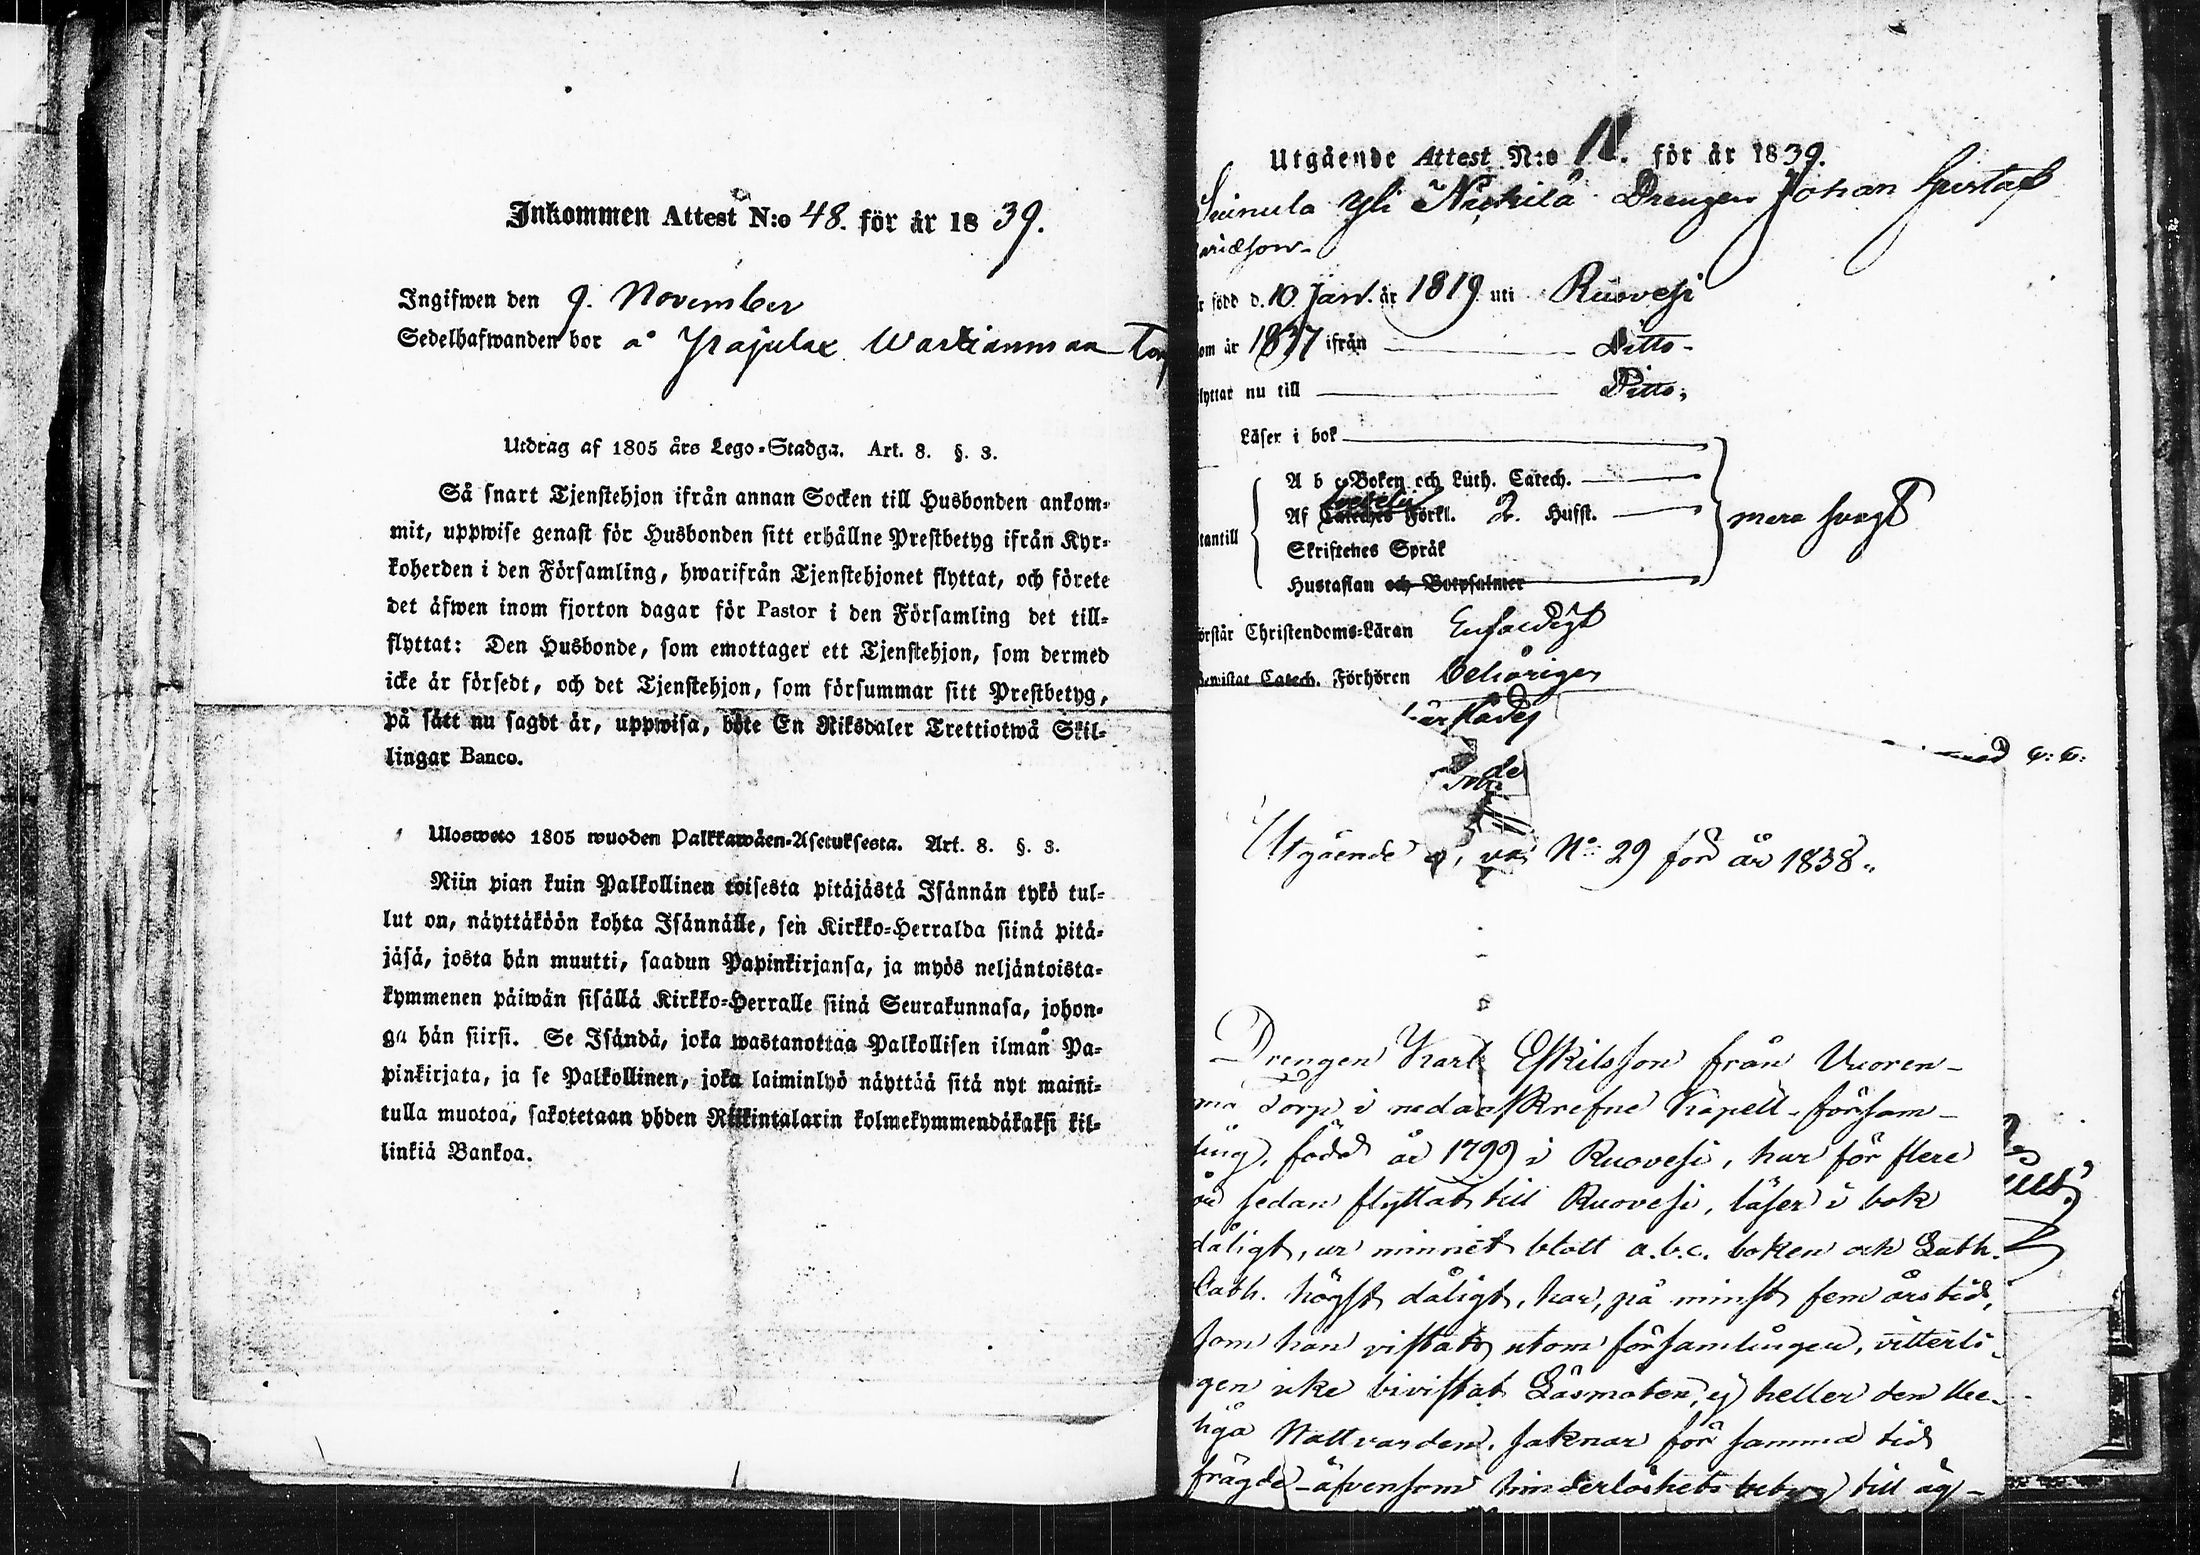 Inkommen Attest N:o 48. för år 1839.
Ingifwen den 9. November
Sedelhafwanden bor å Pajulax Wartianmaa Torp
Utdrag af 1805 års Lego-Stadga. Art. 8. §. 3.
Så snart Tjenstehjon ifrån annan Socken till Husbonden ankom-
mit, uppwise genast för Husbonden sitt erhållne Prestbetyg ifrån Kyr-
koherden i den Församling, hwarifrån Tjenstehjonet flyttat, och förete
det äfwen inom fjorton dagar för Pastor i den Församling det till-
flyttat: Den Husbonde, som emottager ett Tjenstehjon, som dermed
icke är försedt, och det Tjenstehjon, som försummar sitt Prestbetyg,
på sätt nu sagdt är, uppwisa, böte En Riksdaler Trettiotwå Skil-
lingar Banco.
Ulosweto 1805 wuoden Palkkawäen-Asetuksesta. Art. 8. §. 3.
Niin pian kuin Palkollinen toisesta pitäjästä Isännän tykö tul-
lut on, näyttäköön kohta Isännälle, sen Kirkko-Herralda siinä pitä-
jäsä, josta hän muutti, saadun Papinkirjansa, ja myös neljäntoista-
kymmenen päiwän sisällä Kirkko-Herralle siinä Seurakunnasa, johon-
ga hän siirsi. Se Isändä, joka wastanottaa Palkollisen ilman Pa-
pinkirjata, ja se Palkollinen, joka laiminlyö näyttää sitä nyt maini-
tulla muotoa, sakotetaan yhden Riikintalarin kolmekymmendäkaksi kil-
linkiä Bankoa.
Utgående Attest N:o för år 1839.
Yli Drengen Johan Gustaf
född d. 10 Jan. år 1819 uti Ruovesi
om år 1837 ifrån Ditto
lyttar nu till Ditto
Läser i bok
A b c-Boken och Luth. Catech.
Af Förkl. 2. Hufst. mera svagt
tantill
Skriftenes Språk
Hustaflan och Botpsalmer
örstår Christendoms-Läran Enfaldigt
Bewistat Catech. Förhören behörigen
Utgående N:o 29 för år 1838.
Drengen Karl Eskilsson från Vuoren-
torp i nedanskrefne Kapell-försam-
ling, född år 1799 i Ruovesi, har för flere
år sedan flyttat till Ruovesi, läser i bok
dåligt, ur minnet blott a.b.c. boken och Luth.
Cath. högst dåligt, har, på minst fem års tid,
som han vistats utom församlingen, vitterli-
gen icke bivistat Läsmöten, ej heller den Hee-
liga Nattvarden, saknar för samma tid
frägde- äfvensom hinderlöshets betyg till äg-